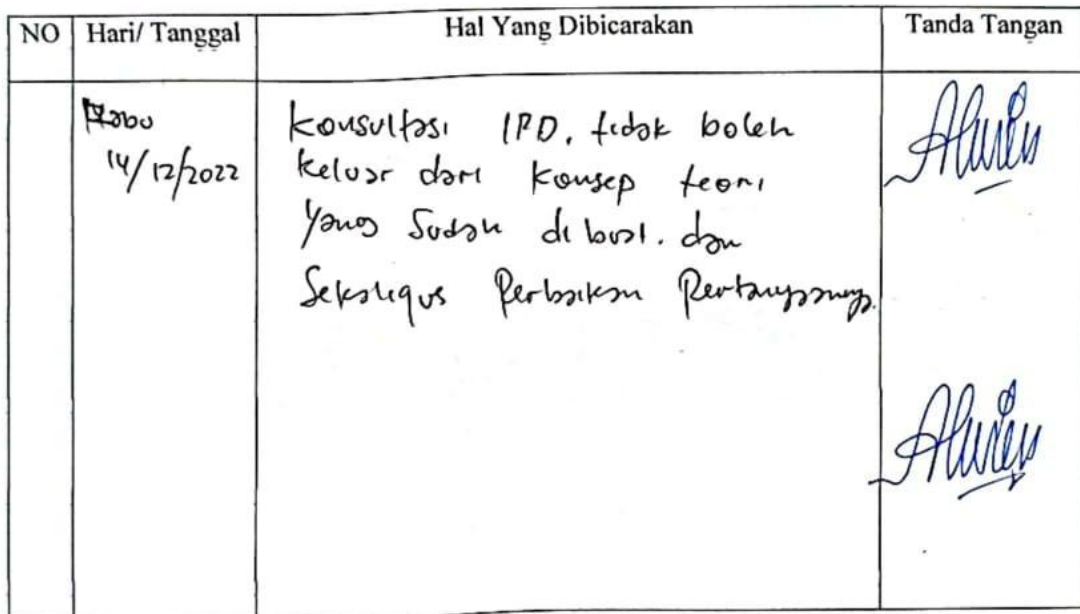 NO Hari/ Tanggal Hal Yang Dibicarakan Tanda Tangan
Rabu
14/12/2022
Konsultasi IPD, tidak boleh
keluar dari konsep teori
yang sudah di buat. dan
Sekaligus Perbaikan Pertanyaannya.